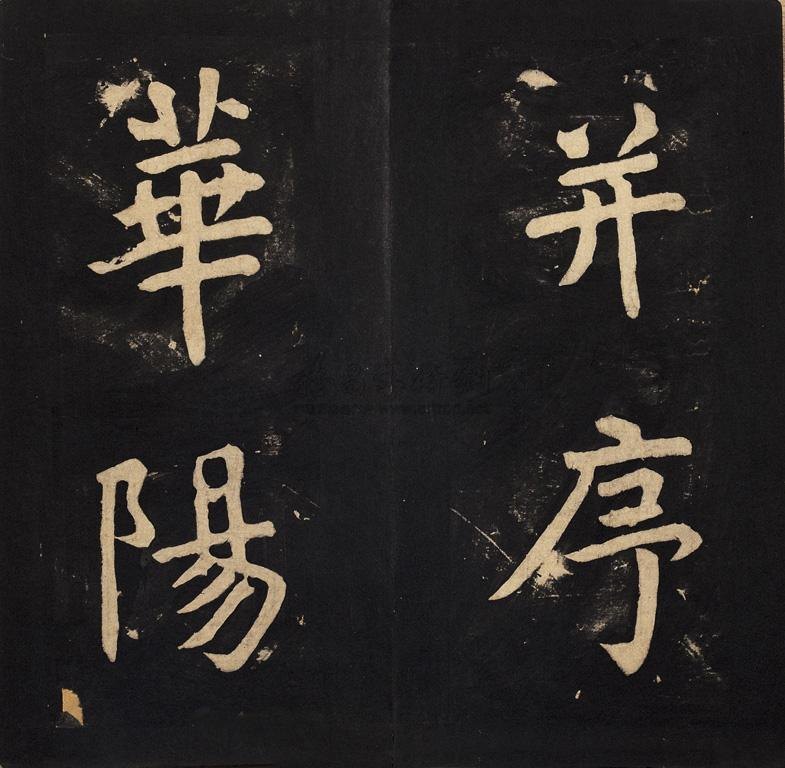 并序
華陽